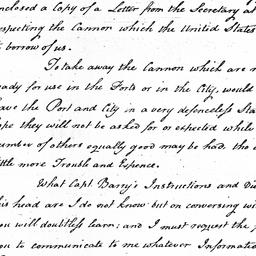 nclosed a Copy of a Letter from the Secretary at
especting the Cannon which the United States
t borrow of us.
To take away the Cannon which are
eady for use in the Forts or in the City, would
eave the Port and City in a very defenceless Sta
ope they will not be asked for or expected while
umber of others equally good may be had, tho a
ittle more Trouble and Expence.
What Capt Barry's Instructions and Di
his head are I do not know but on conversing wi
ou will doubtless learn; and I must request the
ou to communicate to me whatever Informatio